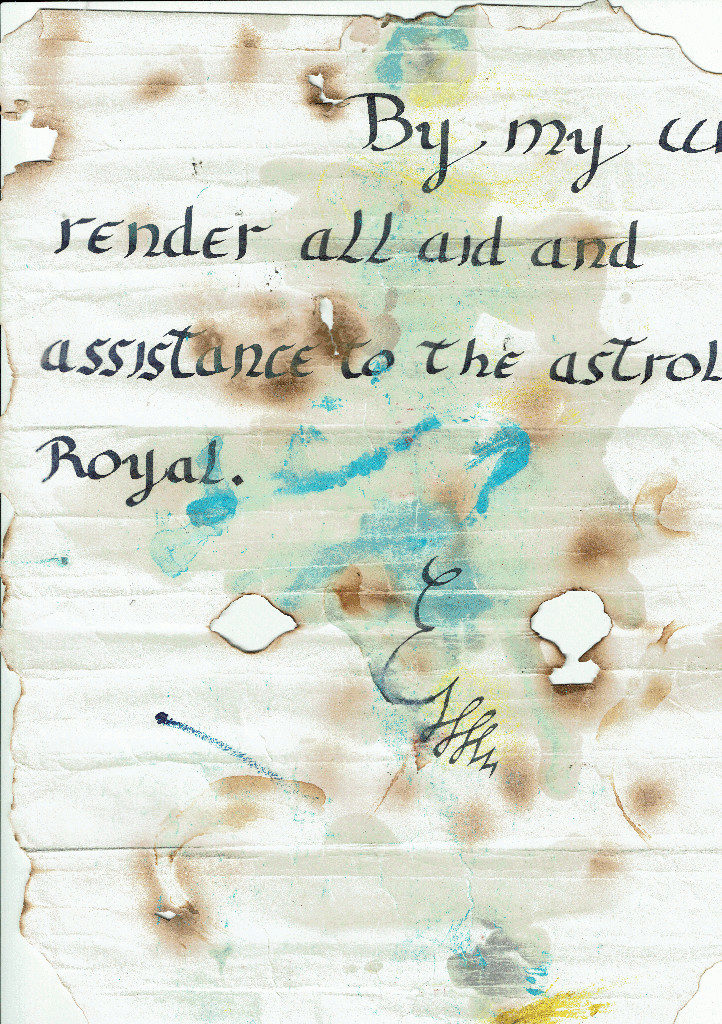 By my
render all aid and
assistance to the astrol
Royal.